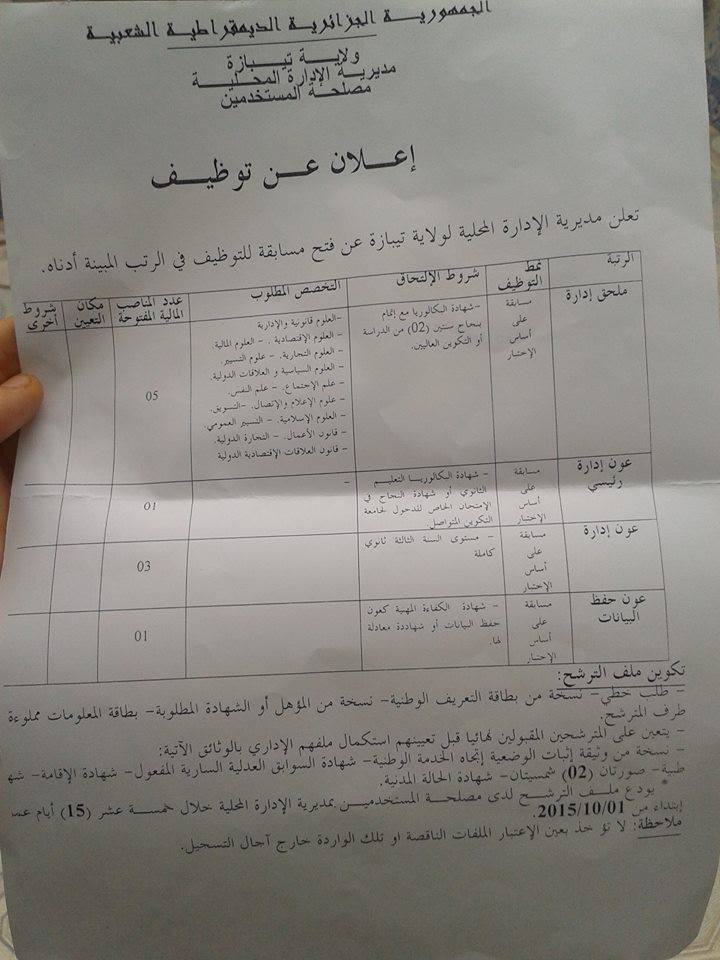 الجمهورية الجزائرية الديمقراطية الشعبية
ولاية تيبازة
مديرية الإدارة المحلية
مصلحة المستخدمين
إعلان عن توظيف
تعلن مديرية الإدارة المحلية لولاية تيبازة عن فتح مسابقة للتوظيف في الرتب المبينة أدناه.
الرتبة
نمط التوظيف
شروط الإلتحاق
التخصص المطلوب
عدد المناصب المالية المفتوحة
مكان التعيين
شروط أخرى
ملحق إدارة
مسابقة
على
أساس
الإختبار
-شهادة البكالوريا مع إتمام
بنجاح سنتين (02) من الدراسة
أو التكوين العاليين.
-العلوم قانونية والإدارية
- العلوم الإقتصادية. - العلوم المالية
- العلوم التجارية. - علوم التسيير.
- العلوم السياسية و العلاقات الدولية.
- علم الإجتماع. - علم النفس.
- علوم الإعلام والإتصال. -التسويق.
- العلوم الإسلامية. - التسيير العمومي.
- قانون الأعمال. - التجارة الدولية.
- قانون العلاقات الإقتصادية الدولية
05
عون إدارة
رئيسي
مسابقة
على
أساس
الإختبار
- شهادة البكالوريا التعليم
الثانوي أو شهادة النجاح في
الإمتحان الخاص للدخول لجامعة
التكوين المتواصل.
-
01
عون إدارة
مسابقة
على
أساس
الإختبار
- مستوى السنة الثالثة ثانوي
كاملة
03
عون حفظ
البيانات
مسابقة
على
أساس
الإختبار
- شهادة الكفاءة المهنية كعون
حفظ البيانات أو شهاددة معادلة
لها.
01
تكوين ملف الترشح:
- طلب خطي- نسخة من بطاقة التعريف الوطنية- نسخة من المؤهل أو الشهادة المطلوبة- بطاقة المعلومات مملوءة
طرف المترشح.
- يتعين على المترشحين المقبولين نهائيا قبل تعيينهم استكمال ملفهم الإداري بالوثائق الآتية:
- نسخة من وثيقة إثبات الوضعية إتجاه الخدمة الوطنية- شهادة السوابق العدلية السارية المفعول- شهادة الإقامة-
طبية- صورتان (02) شمسيتان- شهادة الحالة المدنية.
* يودع ملف الترشح لدى مصلحة المستخدمين بمديرية الإدارة المحلية خلال خمسة عشر (15) أيام
إبتداء من 2015/10/01.
ملاحظة: لا تؤخذ بعين الإعتبار الملفات الناقصة او تلك الواردة خارج آجال التسجيل.